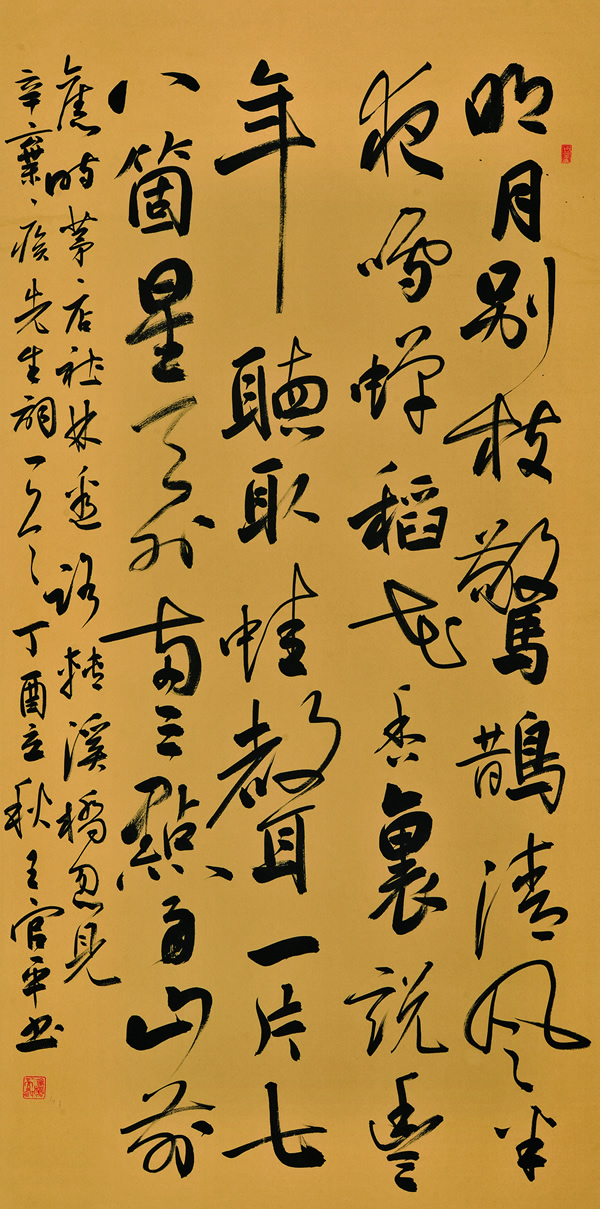 明月别枝驚鵲清风半
夜鳴蟬稻花香裏説豐
年聽取蛙聲一片七
八箇星天外两三點雨山前
舊時茅店社林邊路轉溪橋忽見
辛棄疾先生詞一首丁酉立秋王官平书